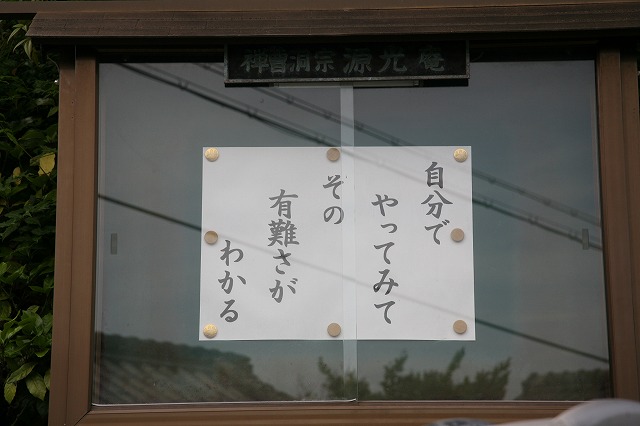 禅曹洞宗 源光庵
自分で
やってみて
その
有難さが
わかる